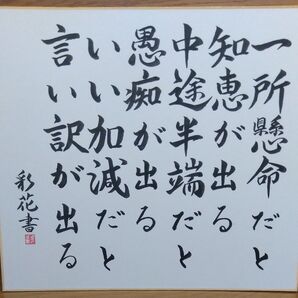 一所懸命だと
知恵が出る
中途半端だと
愚痴が出る
いい加減だと
言い訳が出る
彩花書